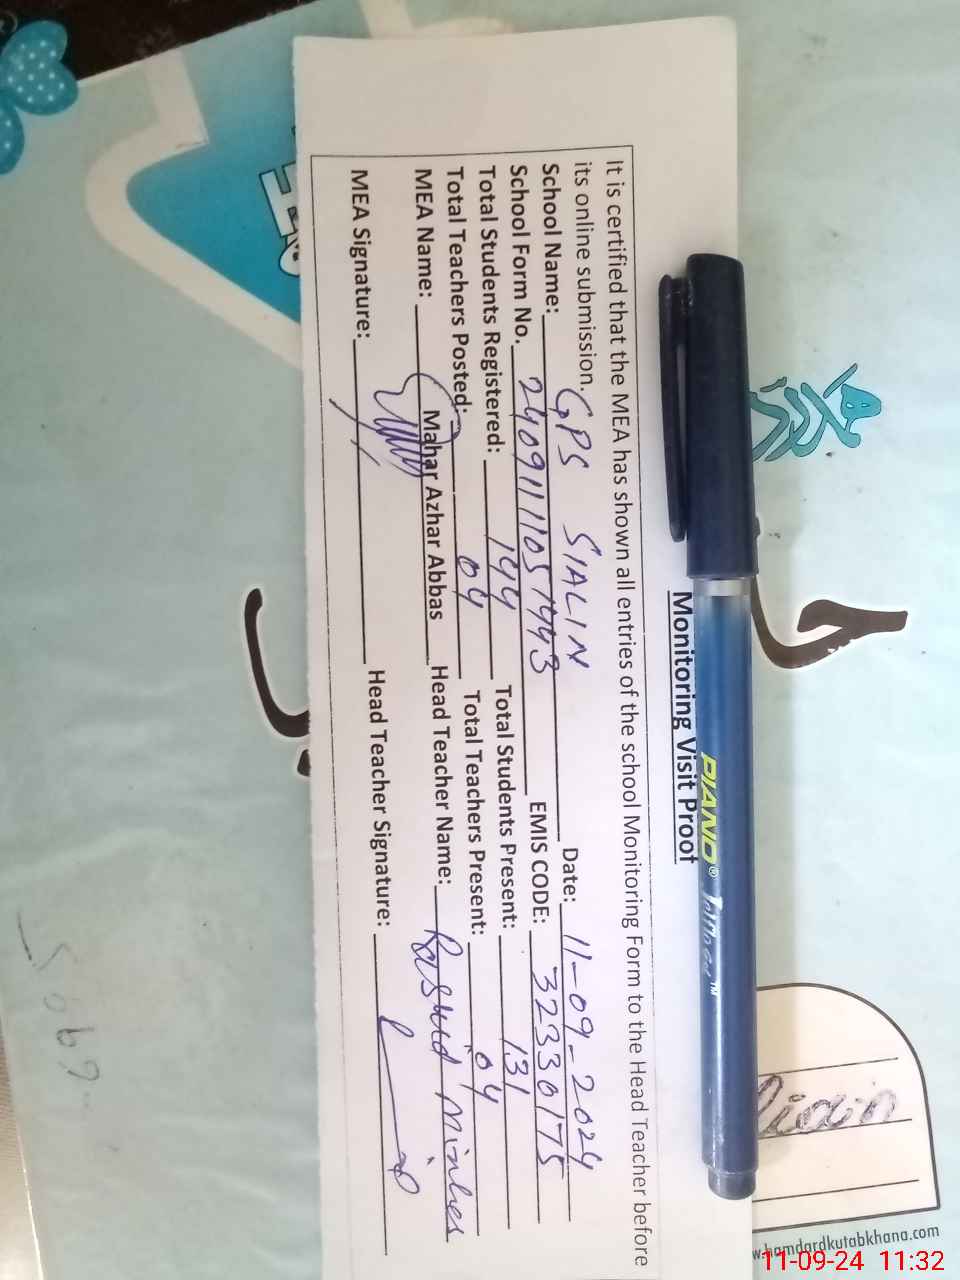 Monitoring Visit Proof
It is certified that the MEA has shown all entries of the school Monitoring Form to the Head Teacher before
its online submission.
School Name: GPS SIALIN Date: 11-09-2024
School Form No. 2409111105 1443 EMIS CODE: 32330175
Total Students Registered: 144 Total Students Present: 131
Total Teachers Posted: 04 Total Teachers Present: 04
MEA Name: Mahar Azhar Abbas Head Teacher Name: Rashid
MEA Signature: Head Teacher Signature:
PIANO®
w.hamdardkutabkhana.com
11-09-24 11:32